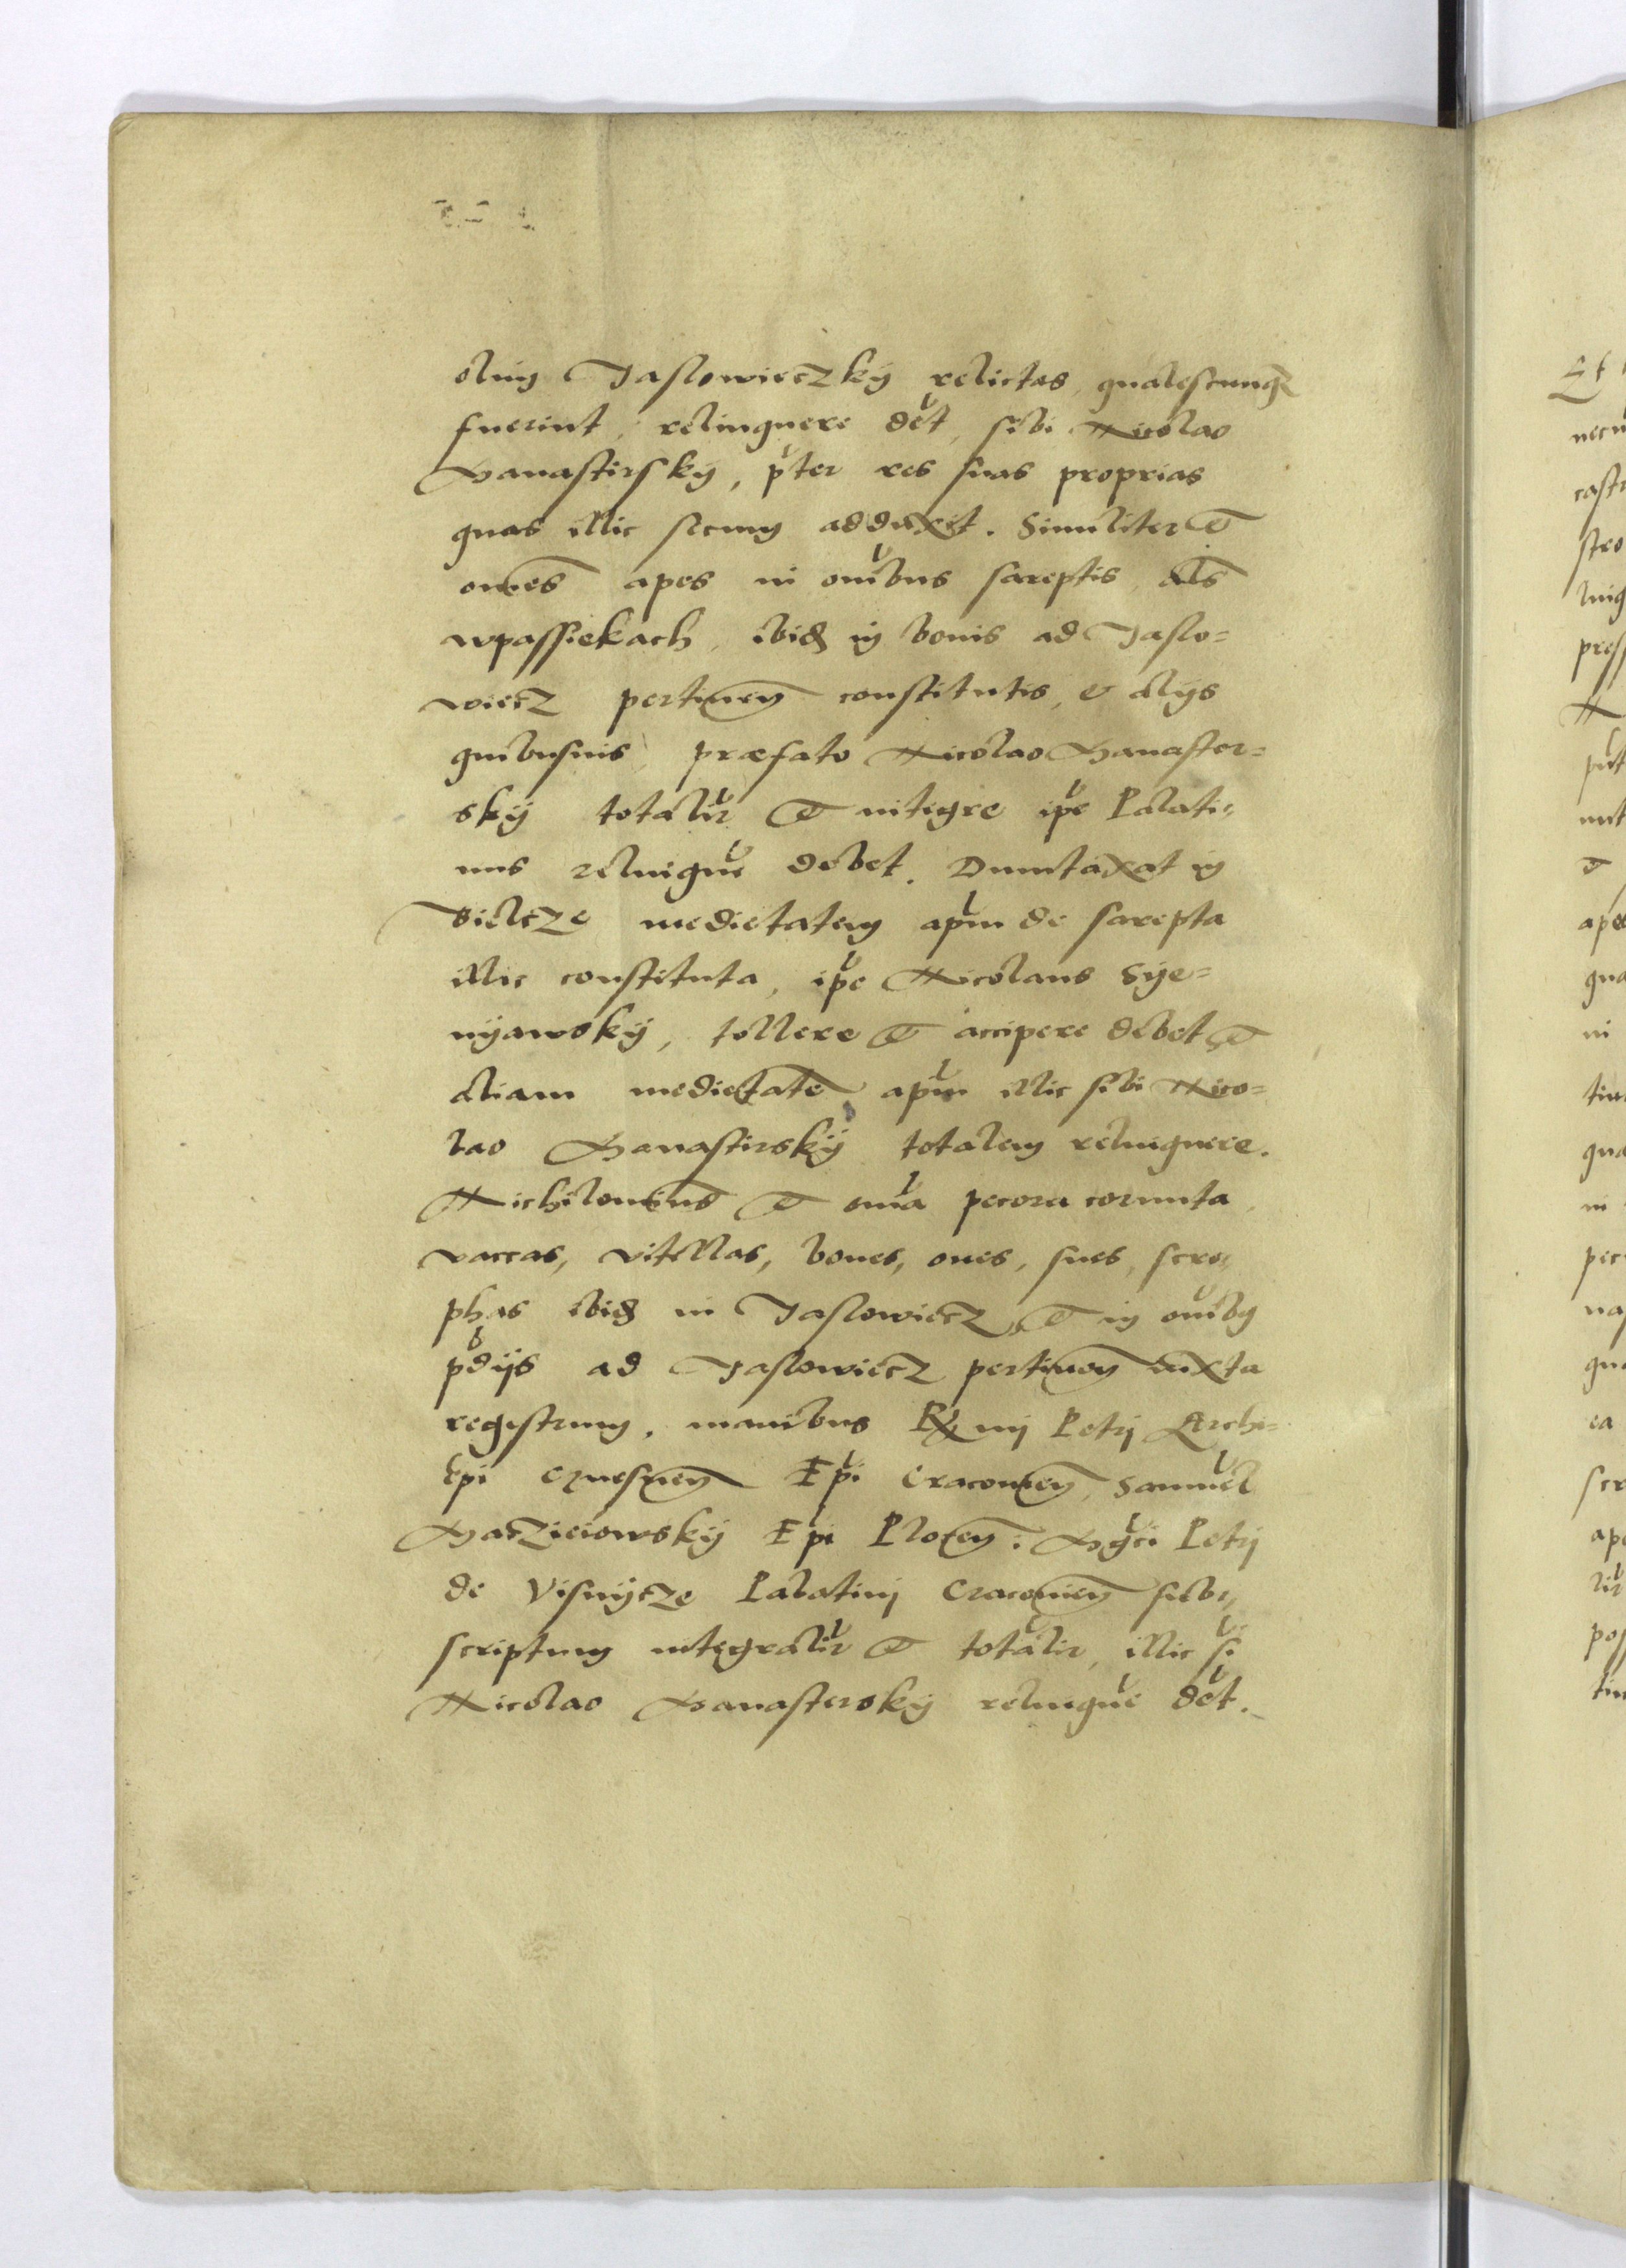 olim Jaslowieczky relictas, qualescunqz
fuerint, relinquere det, sibi Nicolao
Banastirsky, pter res suas proprias
quas illic secum adduxit. Similiter et
omes apes in omibus sareptis, als
wpassiekach, ibid in bonis ad Jaslo=
wiecz pertinen constitutis, et alijs
quibusuis, præfato Nicolao Banaster=
sky totalir et integre ipe Palati=
nus relinque debet. Dumtaxat in
Bielcze medietatem apum de sarepta
illic constituta, ipe Nicolaus Sye=
nyawsky, tollere et accipere debet, et
aliam medietate apum illic sibi Nico=
lao Banastirsky totalem relinquere.
Nichilominus et omia pecora cornuta,
vaccas, vitellas, boues, oues, sues, scro=
phas ibid in Jaslowiecz, et in omibg
pdijs ad Jaslowiecz pertinen iuxta
registrum, manibus Rmi Petri Archi=
Epi Gnesnen Epi Cracouien, Samuel
Maczieiowsky Epi Plocen: Mgci Petri
de Visnycze Palatini Cracouien sub=
scriptum integralir et totalir, illic si
Nicolao Banastersky relinque det.